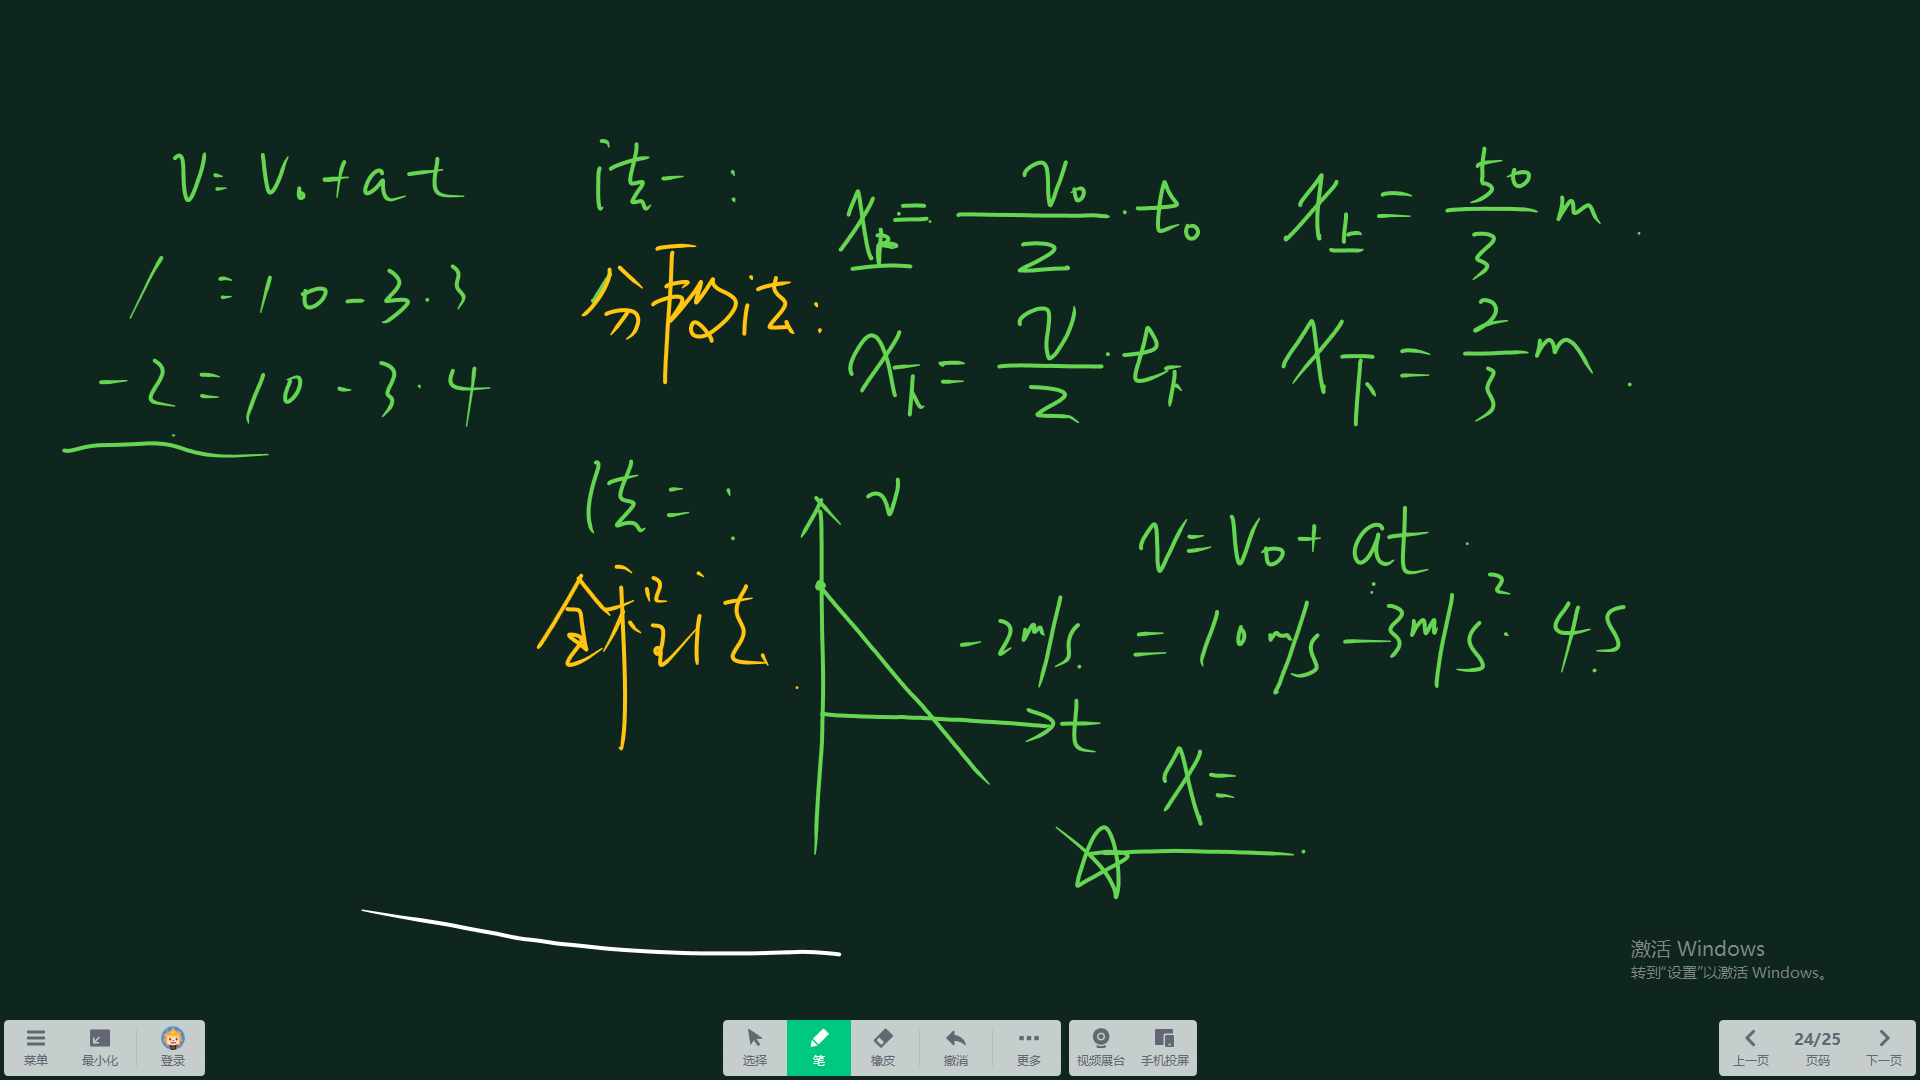 v = v₀ + at
1 = 10 - 3·3
-2 = 10 - 3·4
法一:
分段法:
x上 = v₀/2 · t₀
x上 = 50/3 m.
x下 = v/2 · t下
x下 = 2/3 m.
法二:
全程法
v
t
v = v₀ + at.
-2m/s = 10m/s - 3m/s²· 4s
x =
激活 Windows
转到"设置"以激活 Windows。
菜单 最小化 登录 选择 笔 橡皮 撤消 更多 视频展台 手机投屏
24/25
上一页 页码 下一页